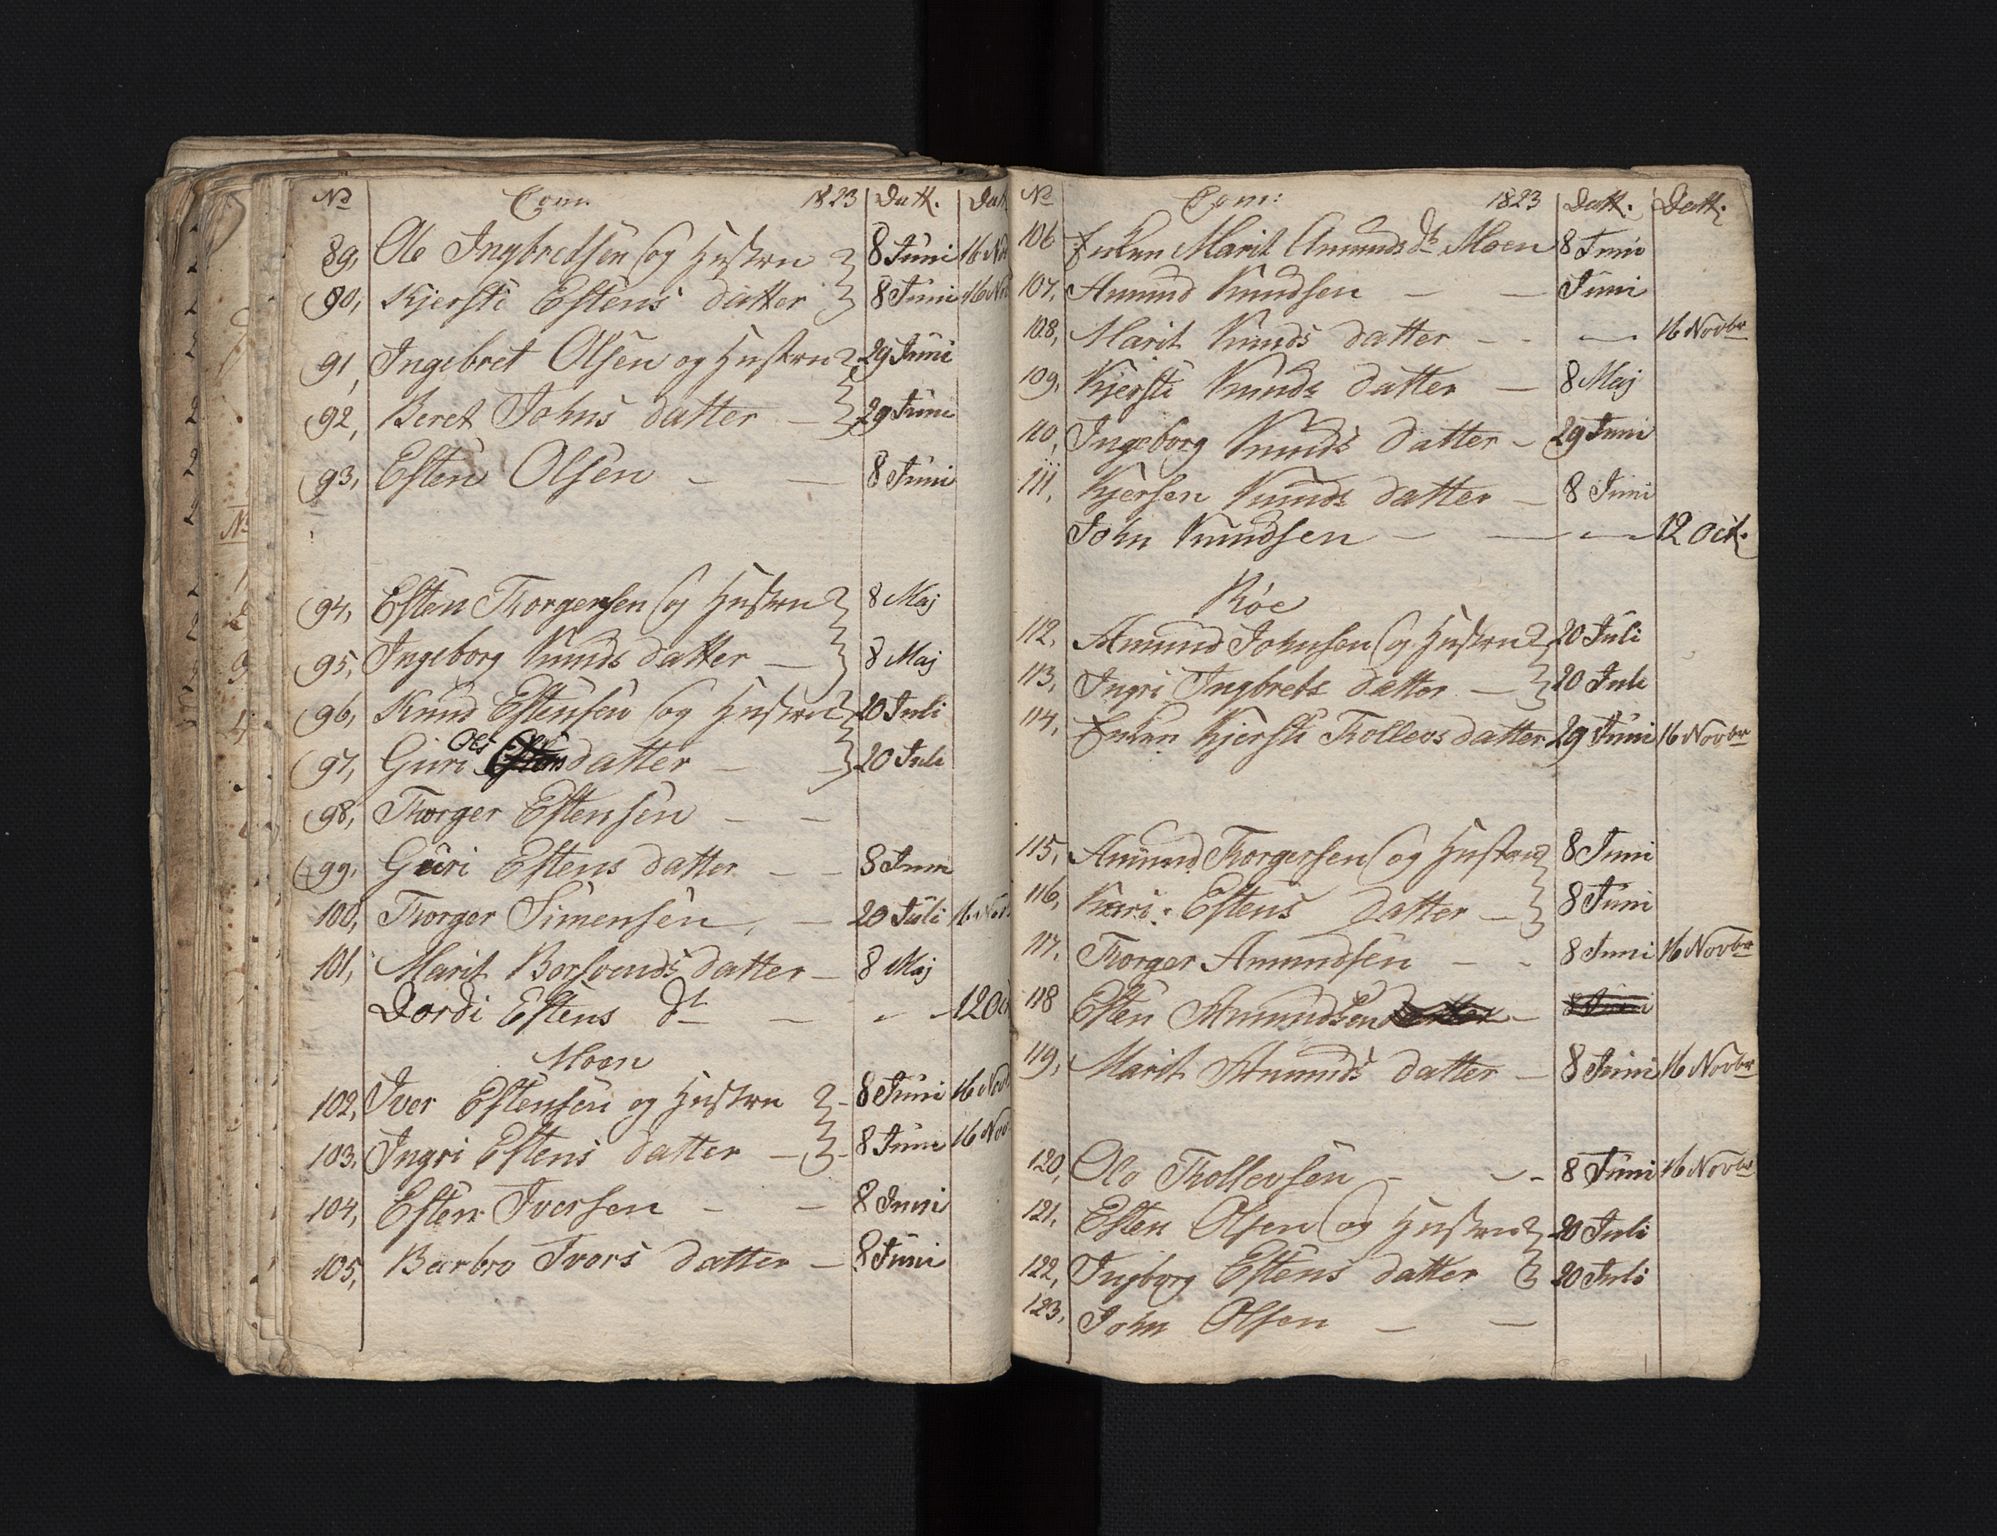 No Com: 1823 Datt. Dat
89, Ole Ingbredsen og Hustru 8 Juni 16 Nov
90, Kjersti Estens datter 8 Juni 16 Nov
91, Ingebret Olsen og Hustru 29 Juni
92, Beret Johns datter - 29 Juni
93, Esten Olsen - - 8 Juni
94, Esten Thorgersen og Hustru 8 Maj
95, Ingeborg Knuds datter - 8 Maj
96, Knud Estensen og Hustru 20 Juli
Ols
97, Guri Estensdatter - - 20 Juli
98, Thorger Estensen - -
99, Guri Estens datter - - 8 Juni
100, Thorger Simensen, - 20 Juli 16 Nov
101, Marit Borsvends datter - 8 Maj
Dordi Estens Dt - - - 12 Oct
Moen
102, Iver Estensen og Hustru - 8 Juni 16 Nov
103, Ingri Estens datter - - 8 Juni 16 Nov
104, Esten Iversen - - 8 Juni
105, Barbro Ivers datter - 8 Juni
No Com: 1823 Datt. Datt.
106 Enken Marit Amunds Dt Moen 8 Juni
107, Amund Knudsen - - Juni
108, Marit Knuds datter - - - 16 Novbr
109, Kjersti Knuds datter - 8 Maj
110, Ingeborg Knuds datter - 29 Juni
111, Kjersen Knuds datter - 8 Juni
John Knudsen - - - 12 Oct.
Røe
112, Amund Johnsen og Hustru 20 Juli
113, Ingri Ingbrets datter - 20 Juli
114, Enken Kjersti Tollevs datter 29 Juni 16 Novbr
115, Amund Thorgersen og Hustru 8 Juni
116, Kari Estens datter - 8 Juni
117, Thorger Amundsen - - 8 Juni 16 Novbr
118 Esten Amundsen datter - 8 Juni
119, Marit Amunds datter - 8 Juni 16 Novbr
120, Ole Tollevsen - - - 8 Juni 16 Novbr
121, Esten Olsen og Hustru 20 Juli
122, Ingborg Estens datter 20 Juli
123, John Olsen - -